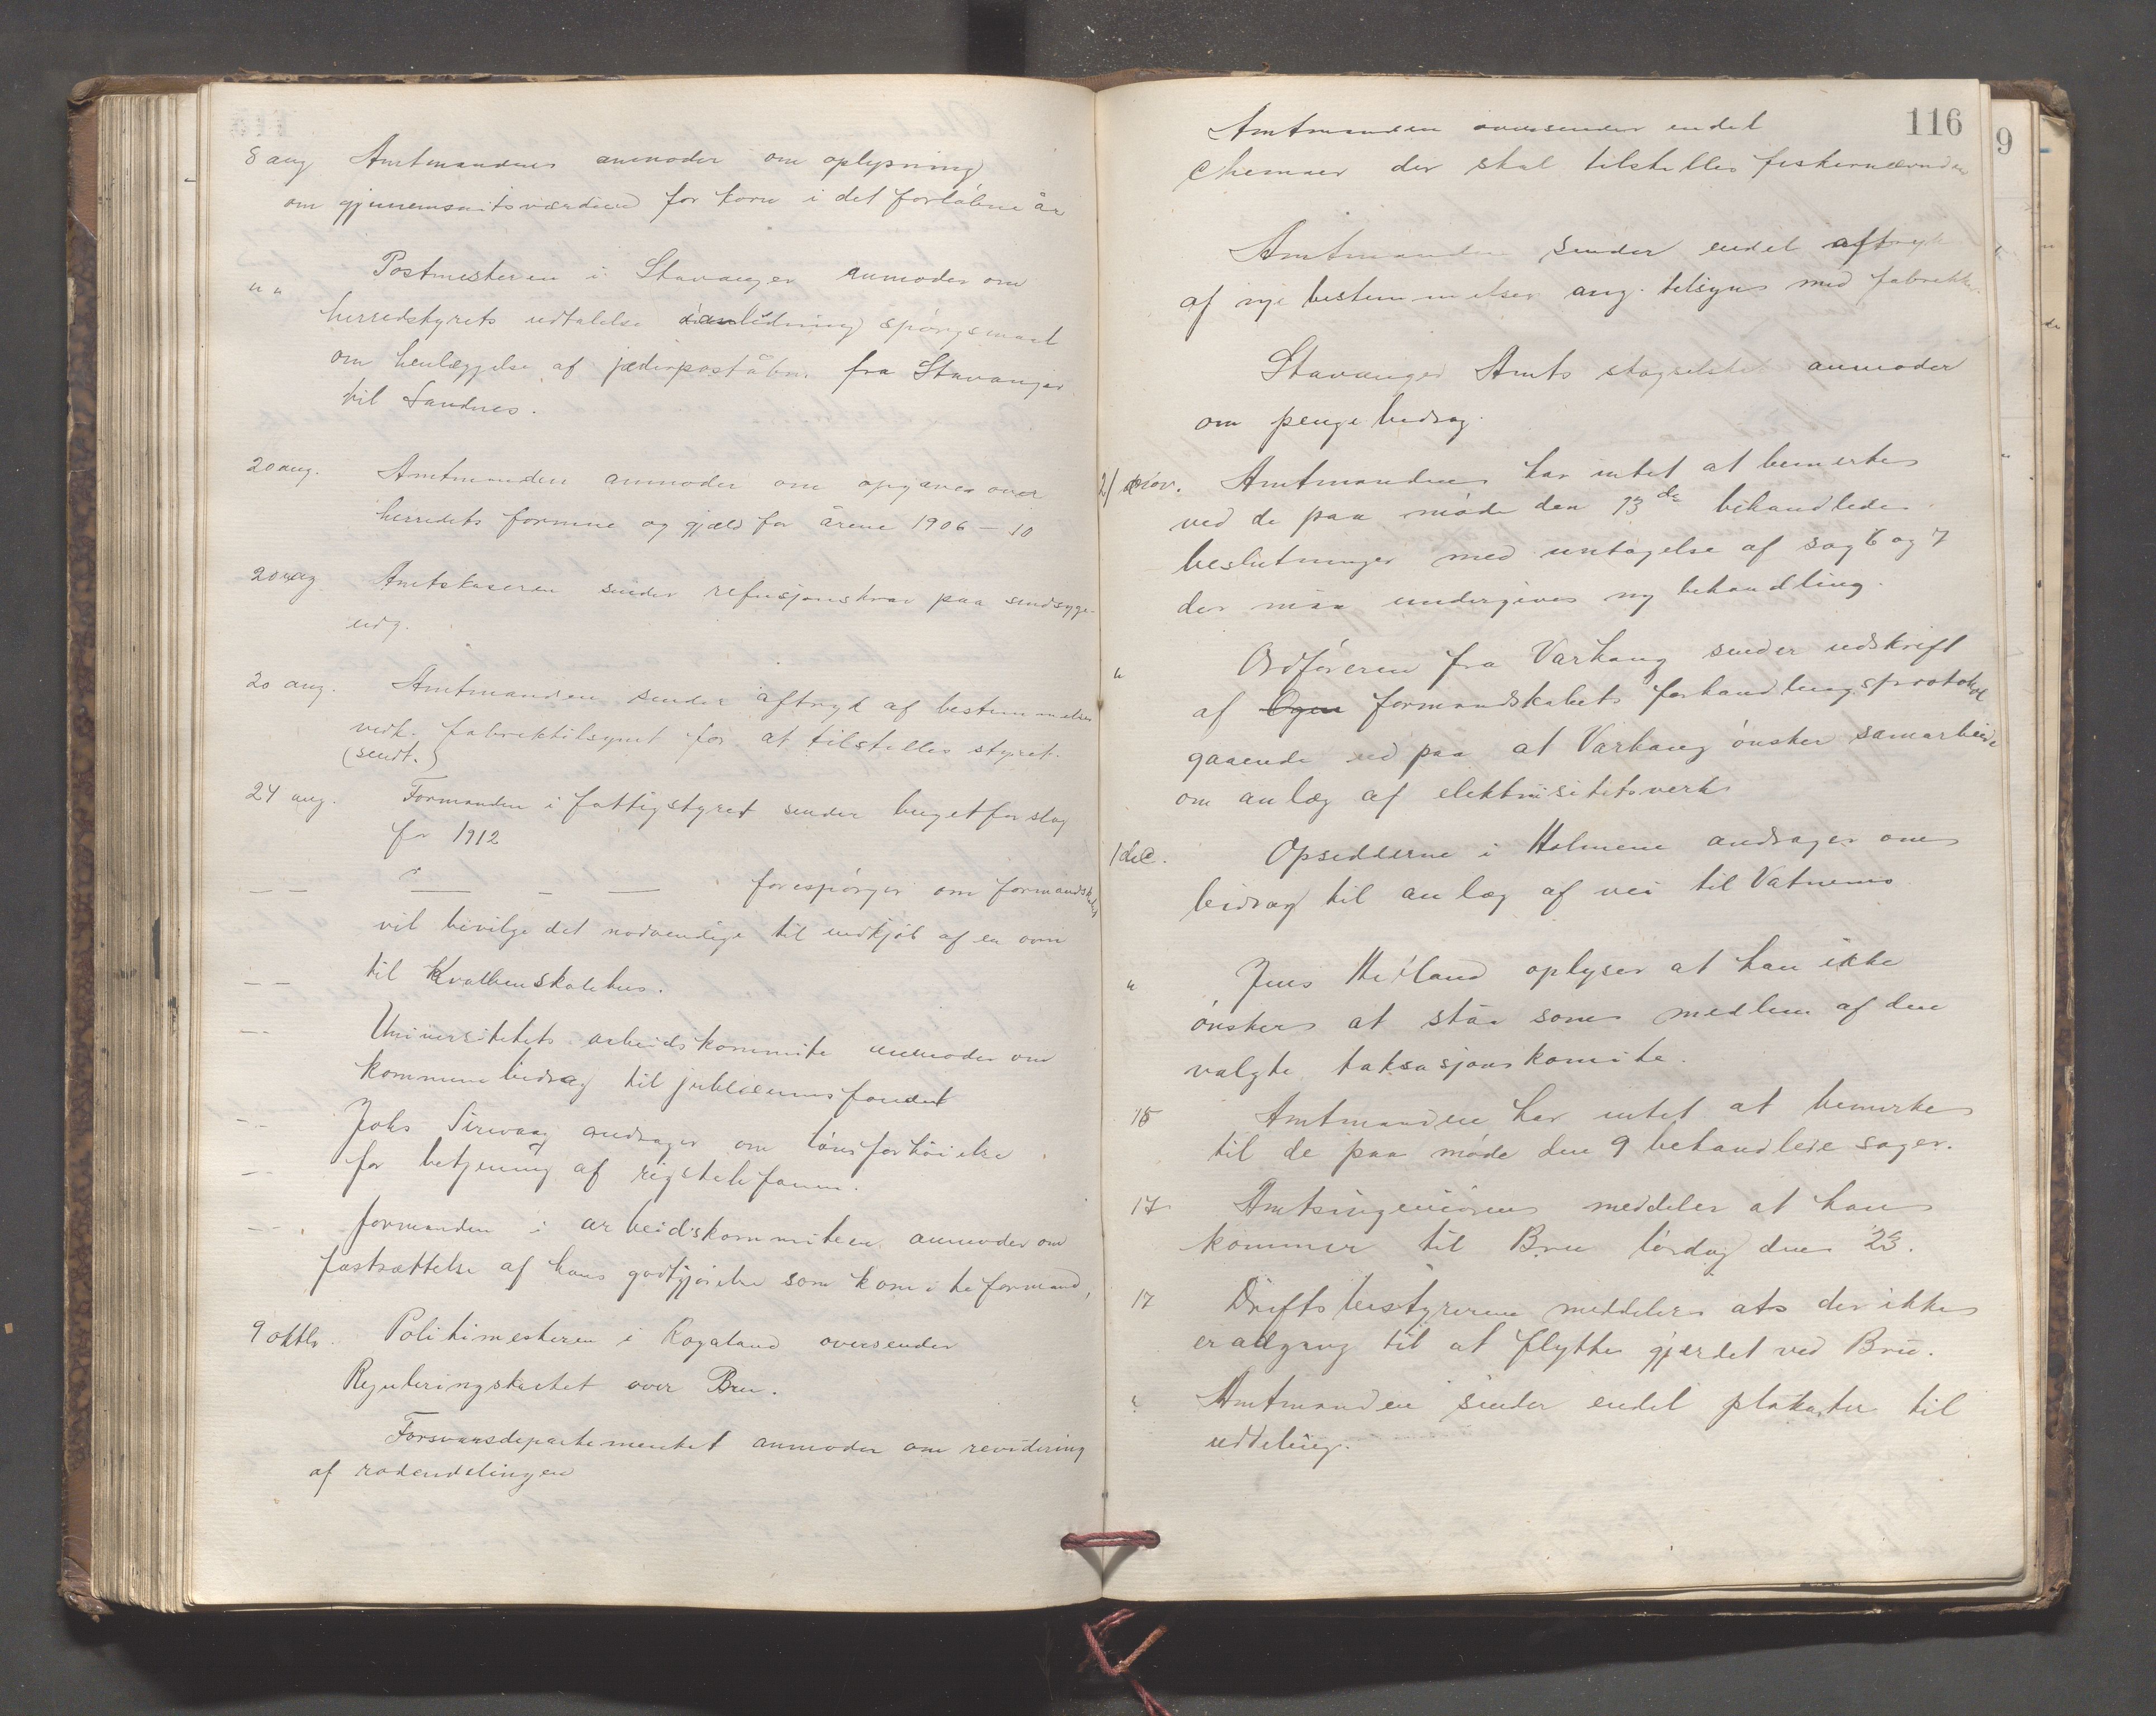 8 aug Amtmanden anmoder om oplysning
om gjennemsnitsværdien for korn i det forløbne år
" " Postmesteren i Stavanger anmoder om
herredstyrets udtalelse i anledning spørgsmaal
om henlæggelse af jæderpoståbn. fra Stavanger
til Sandnes.
20 aug. Amtmanden anmoder om opgave over
herredets formue og gjæld for årene 1906 – 10
20 aug Amtskaseren sender refusjonskrav paa sindsyge-
udg.
20 aug. Amtmanden sender aftryk af bestemmelser
vedk. fabriktilsynet for at tilstilles styret.
(sendt.)
24 aug. Formanden i fattigstyret sender bugetforslag
for 1912
— — " — – — forespørger om formandskabet
vil bevilge det nødvendige til indkjøb af en ovn
— — til Kvalbenskolehus.
— Universitetets arbeidskommite anmoder om
kommunebidrag til jubilæumsfondet
— Johs Sirevaag andrager om lønsforhøielse
— for betjening af rigstelefonen.
— . formanden i arbeidskommiteen anmoder om
fastsættelse af hans godtgjørelse som komiteformand,
9 oktb. Politimesteren i Rogaland oversender
Reguleringskartet over Bru.
Forsvarsdepartementet anmoder om revidering
af rodeindelingen
116
9
Amtmanden oversender endel
schemaer der skal tilstilles fiskernævnden
Amtmanden sender endel aftryk
af nye bestemmelser ang. tilsyn med fabrikker.
Stavanger Amts skogselskab anmoder
om pengebidrag.
21 nov. Amtmanden har intet at bemerke
ved de paa møde den 13de behandlede
beslutninger med untagelse af sag 6 og 7
der maa undergives ny behandling.
" Ordføreren fra Varhaug sender udskrift
af Ogna formandskabets forhandlingsprotokol
gaaende ud paa at Varhaug ønsker samarbeide
om anlæg af elektrisitetsverk
1 dec. Opsidderne i Holmene andrager om
bidrag til anlæg af vei til Vatnemo
" Jens Helland oplyser at han ikke
ønsker at stå som medlem af den
valgte taksasjonskomite.
15 Amtmanden har intet at bemerke
til de paa møde den 9 behandlede sager.
17 Amtsingeniøren meddeler at han
kommer til Bru lørdag den 23.
17 Driftsbestyreren meddeler at der ikke
er adgang til at flytte gjerdet ved Bru.
" Amtmanden sender endel plakater til
uddeling.